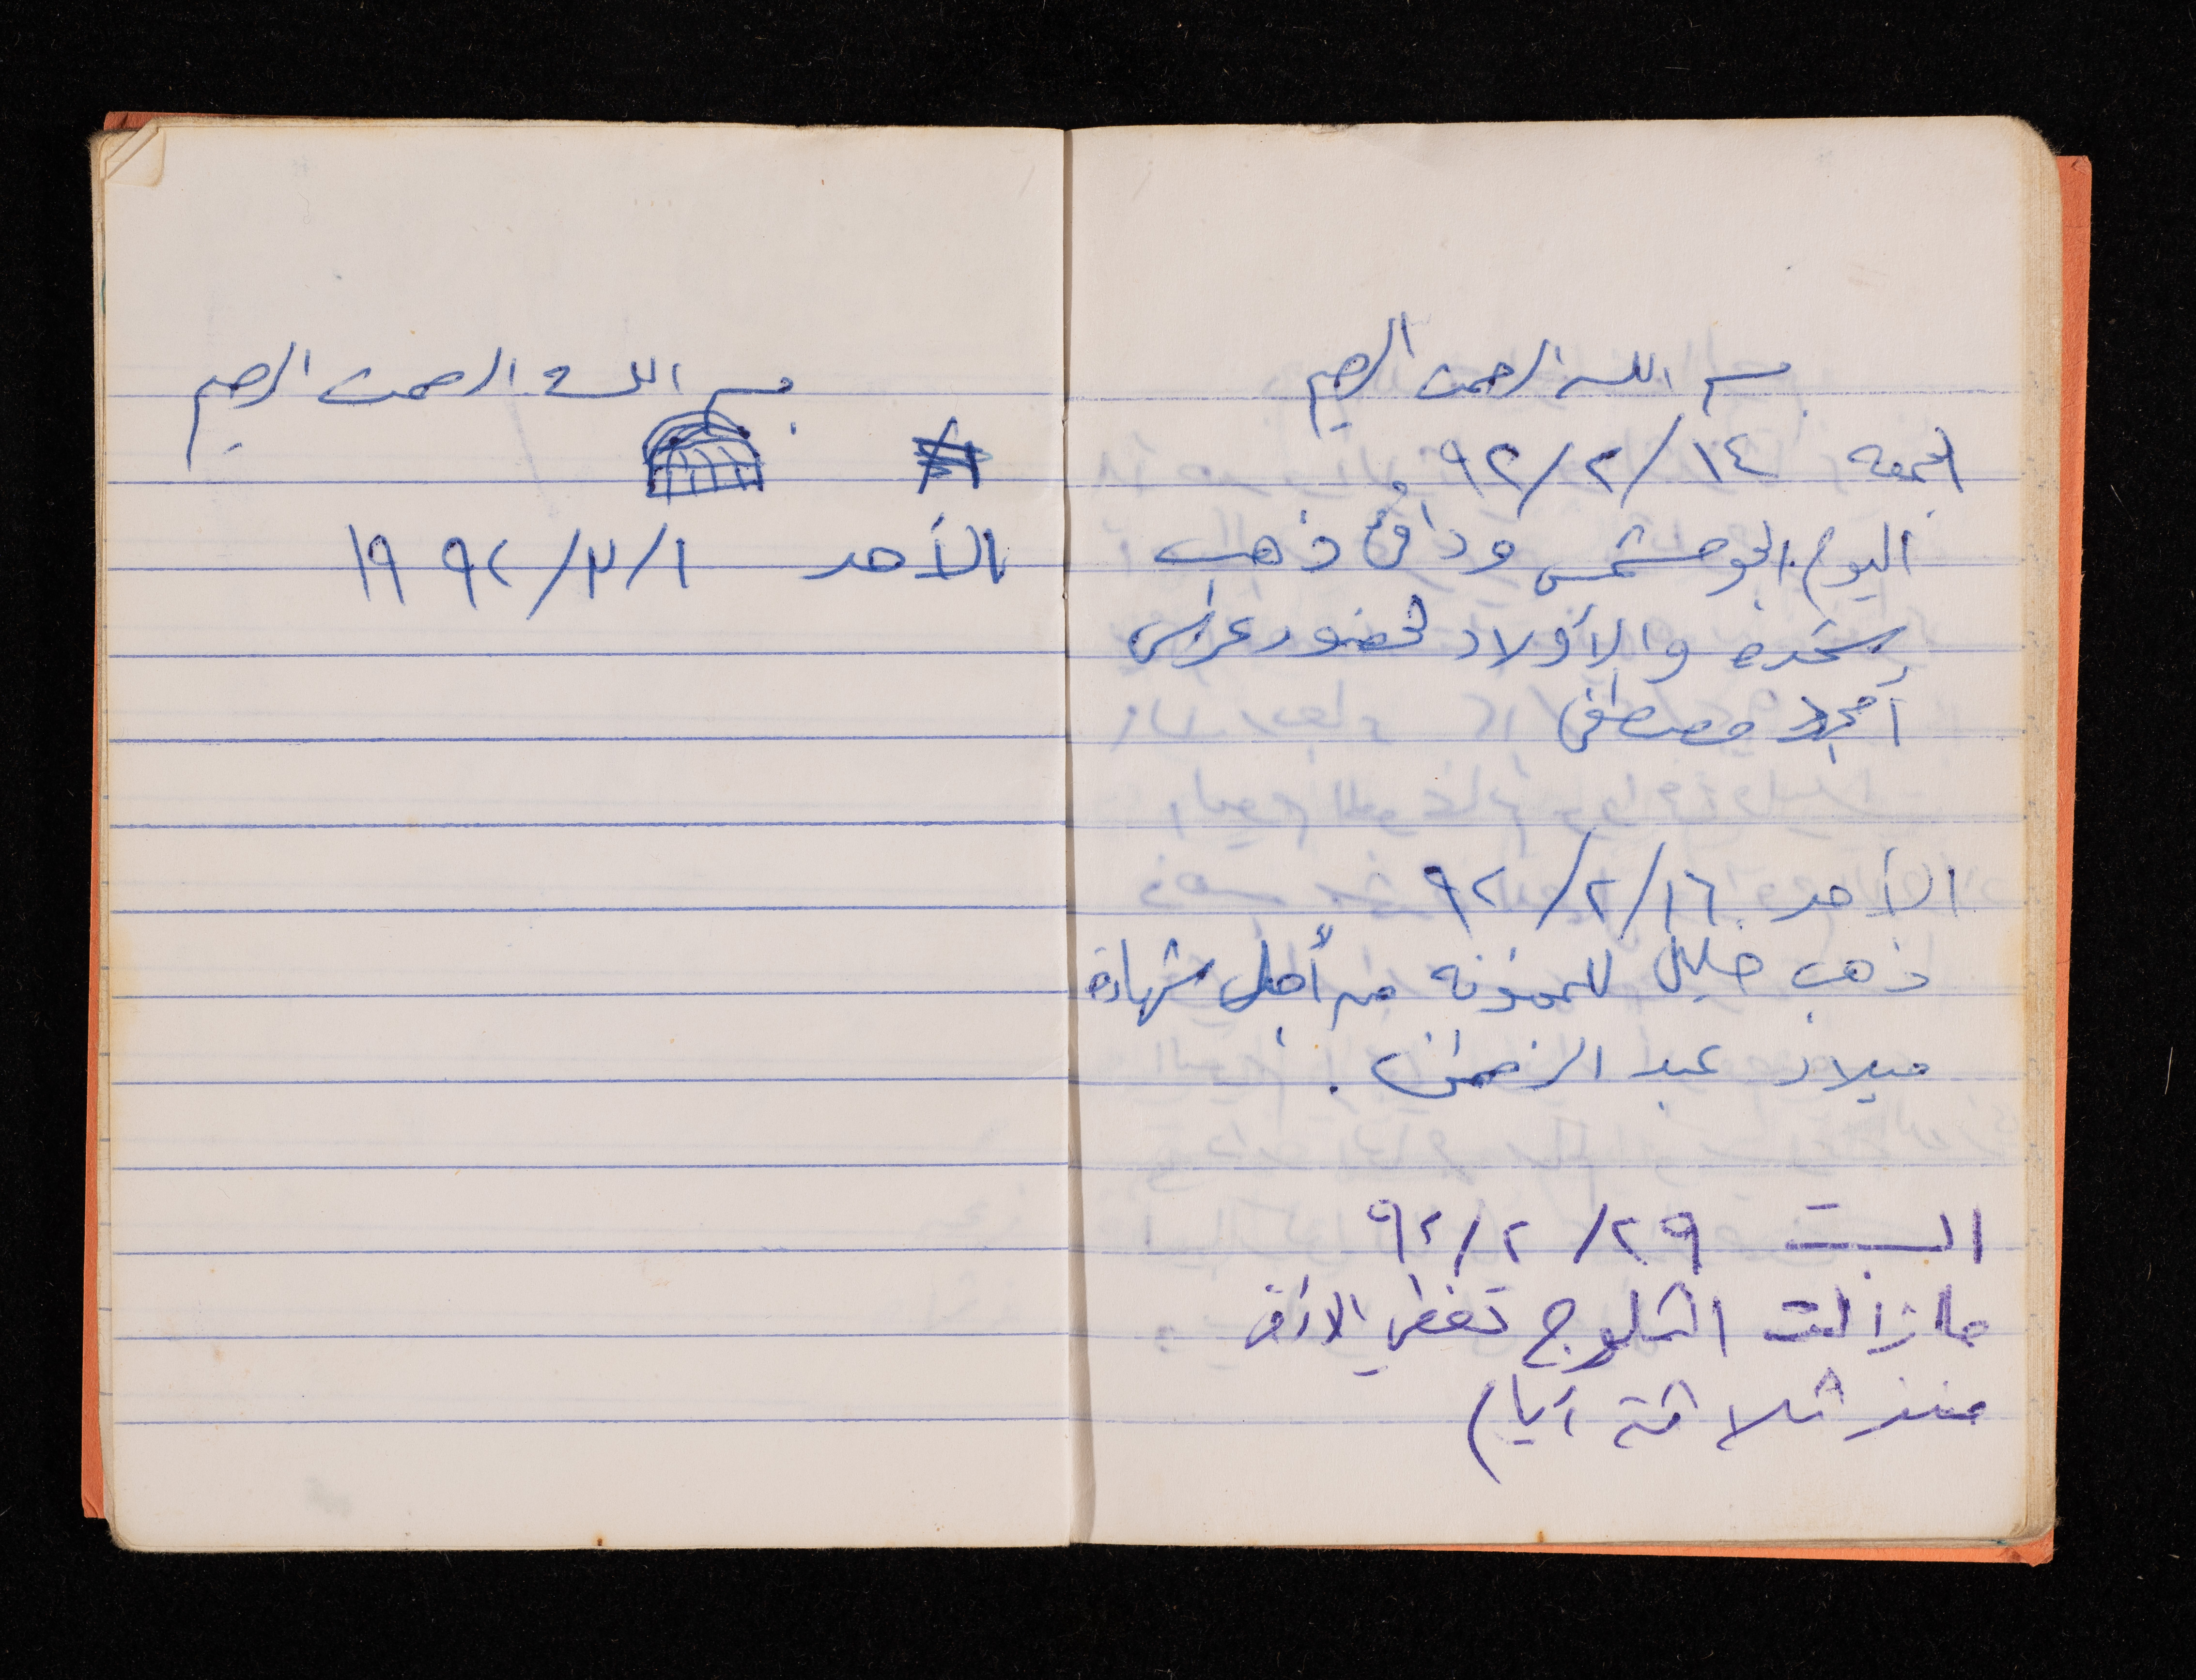 بسم الله الرحمن الرحيم
الجمعه ١٤/٢/٩٢
اليوم الجو مشمس ودافئ ذهب
والأولاد لحضور عراس
أمجد مصطفى
الأحد ١٦/٢/٩٢
ذهب خليل من أجل شهادة
ميلاد عبد الرحمن.
السبت ٢٩/٢/٩٢
مازالت الثلوج تغطي الارض
منذ ثلاثة أيام
بسم الله الرحمن الرحيم
الأحد ١/٣/١٩٩٢